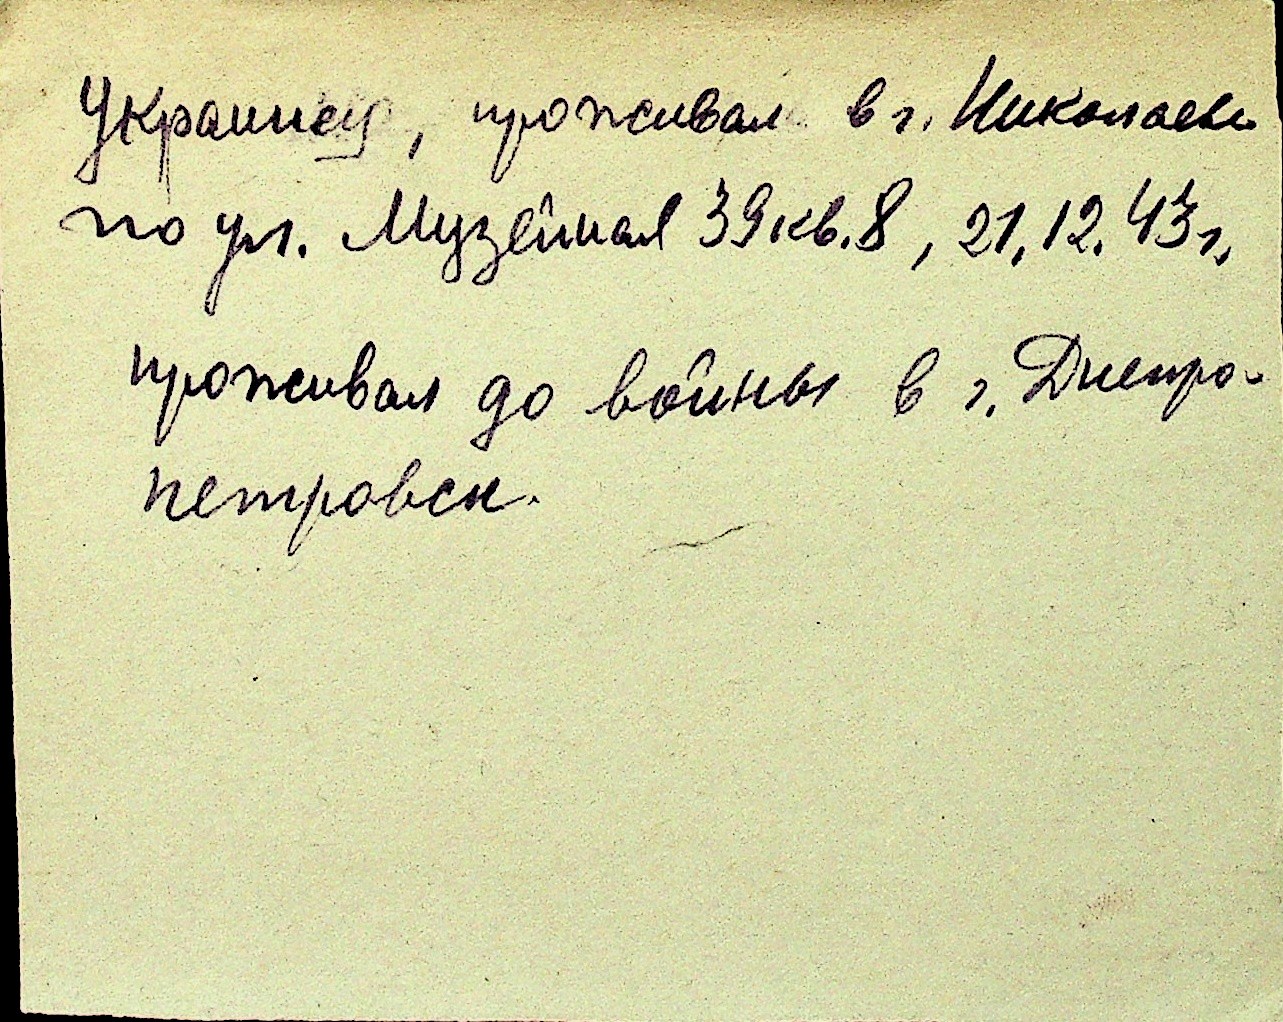 Украинец, проживал в г. Николаеве
по ул. Музейная 39 кв. 8, 21.12.43 г.
проживал до войны в г. Днепро-
петровск.